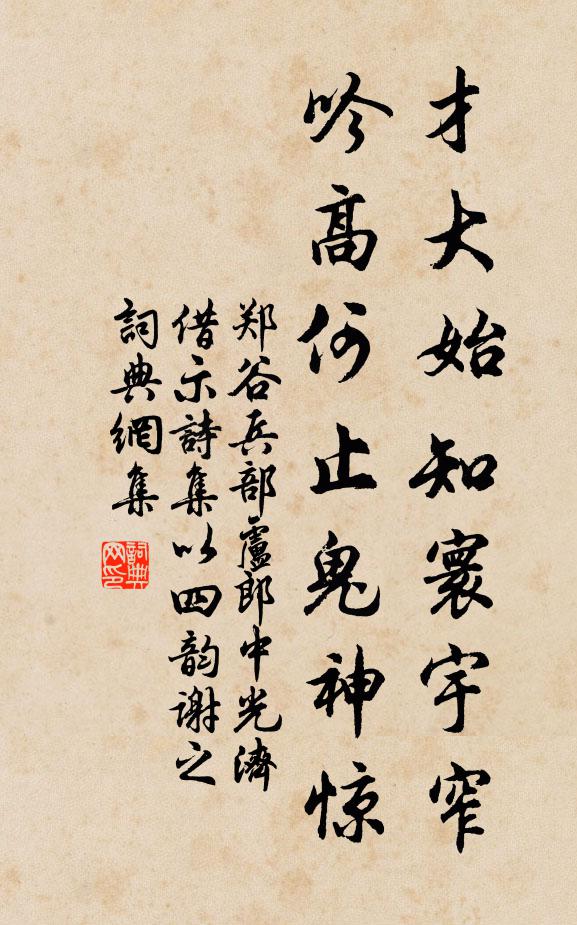 才大始知寰宇窄
吟高何止鬼神惊
郑谷兵部盧郎中光濟
借示詩集以四韵谢之
詞典網集
詞典网印